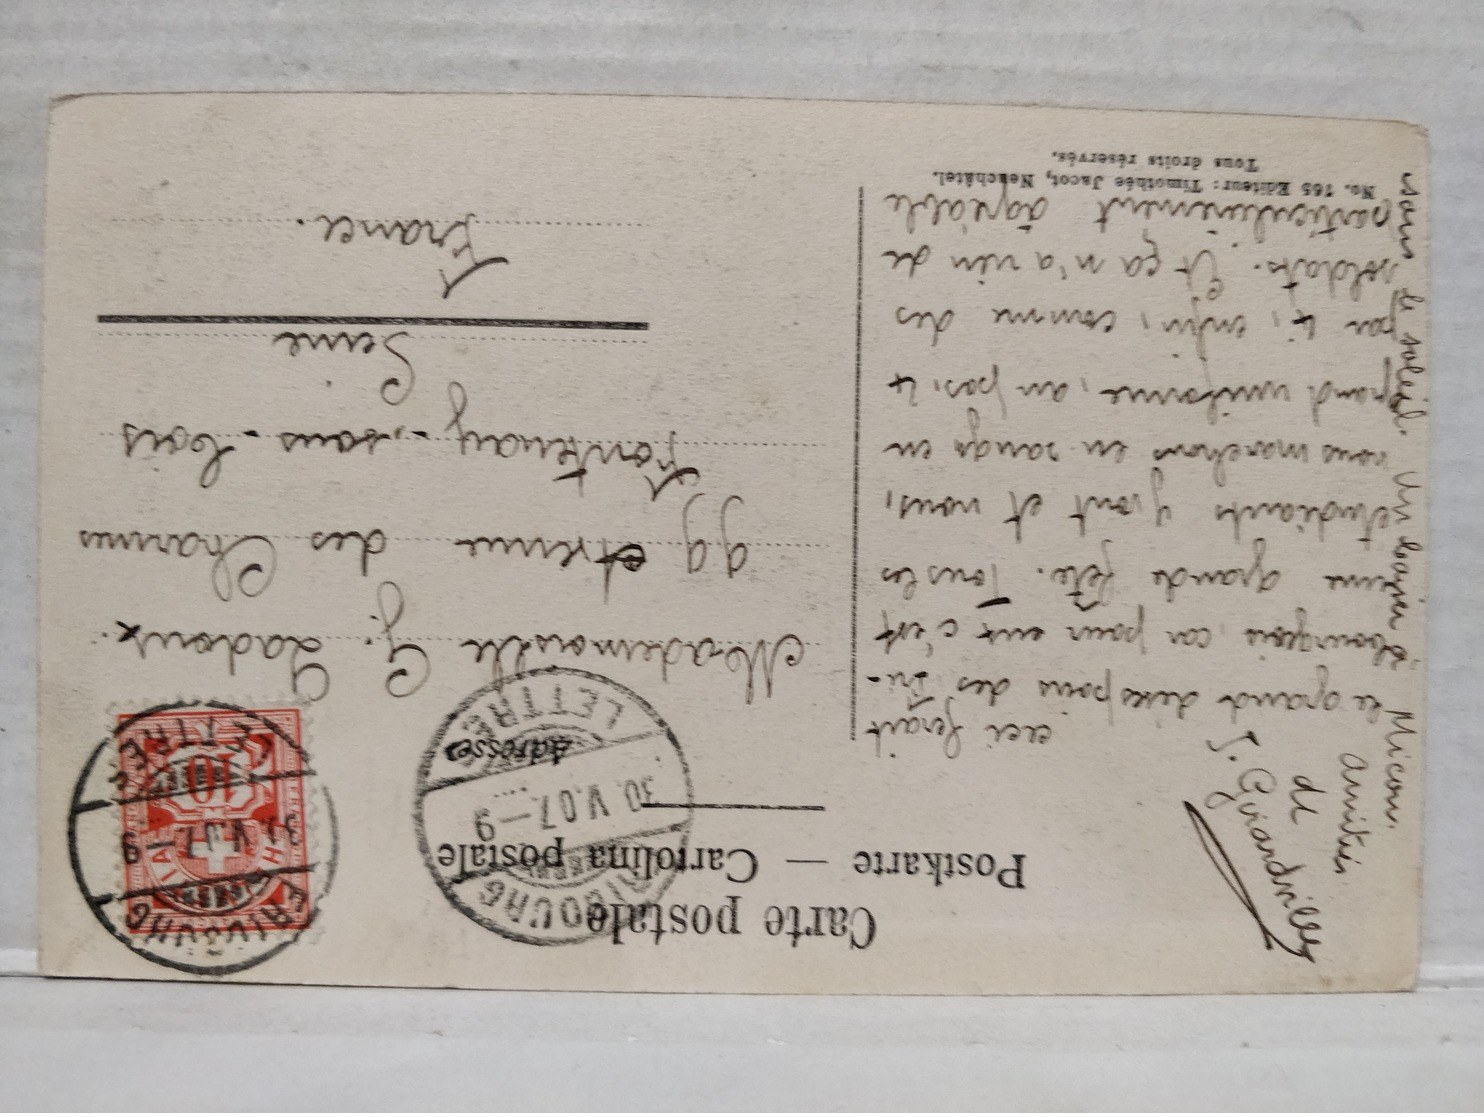 Carte postale
Postkarte — Cartolina postale
Adresse
FRIBOURG
LETTRE
30.V.07.–9
FRIBOURG
LETTRE
10
HELVETIA
ceci ferait
le grand désespoir des Fri-
bourgeois, car pour eux c'est
une grande fête. Tous les
étudiants y vont et nous,
nous marchons en rangs en
grand uniforme, au pas, 4
par 4, enfin, comme des
soldats. Et ça n'a rien de
particulièrement agréable
sous le soleil. Un baiser à
Micou.
Amitiés
de
Grandvilles
Mademoiselle G. Ladoux.
99 avenue des Charmes
Fontenay-sous-bois
Seine
France.
No. 765 Editeur: Timothée Jacot, Neuchâtel.
Tous droits réservés.